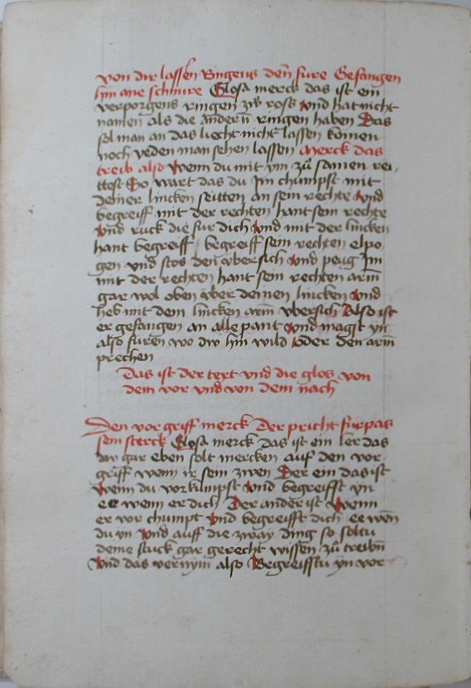 von dir lassen Ringens den füre Gefangen
hin ane schnüre Glosa merck das ist ein
verporgens ringen zw ross vnd hat nicht
namen als die andern ringen haben Das
sol man an das liecht nicht lassen komen
noch yeden man sehen lassen Merck das
treib also Wenn du mit im zu samen rei
ttest So wart das du Im chumpst mit
deiner lincken seitten an sein rechte vnd
begreiff mit der rechten hant sein rechte
vnd ruck die für dich vnd mit der lincken
hant begreiff begreiff sein rechten elpo
gen vnd stos den vbersich vnd peug Im
mit der rechten hant sein rechten arm
gar wol oben vber deinen lincken vnd
heb mit dem lincken arm vbersich Also ist
er gefangen an alle pant vnd magst yn
also füren wo dw hin wild oder den arm
prechen
Das ist der text vnd die glos von
dem vor vnd von dem nach
Den vorgriff merck Der pricht fürpas
sein sterck Glosa merck das ist ein ler das
dw gar eben solt mercken auf den vor
griff wenn ir sein zwen Der ein das ist
Wenn du vorkümpst vnd begreifft yn
ee wenn er dich Der ander ist Wenn
er vor chumpt vnd begreifft dich ee wen
du yn vnd auff die zway ding so soltu
deine stuck gar gerecht wissen zu treibn
vnd das vernym also Begreiffstu yn vor